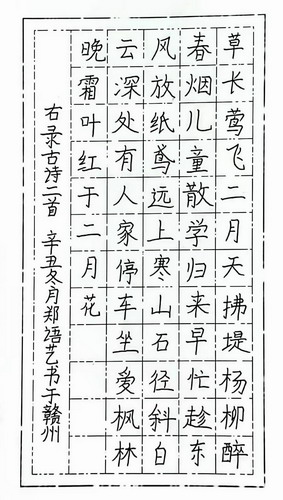 草长莺飞二月天拂堤杨柳醉
春烟儿童散学归来早忙趁东
风放纸鸢远上寒山石径斜白
云深处有人家停车坐爱枫林
晚霜叶红于二月花
右录古诗二首 辛丑冬月郑语艺书于赣州